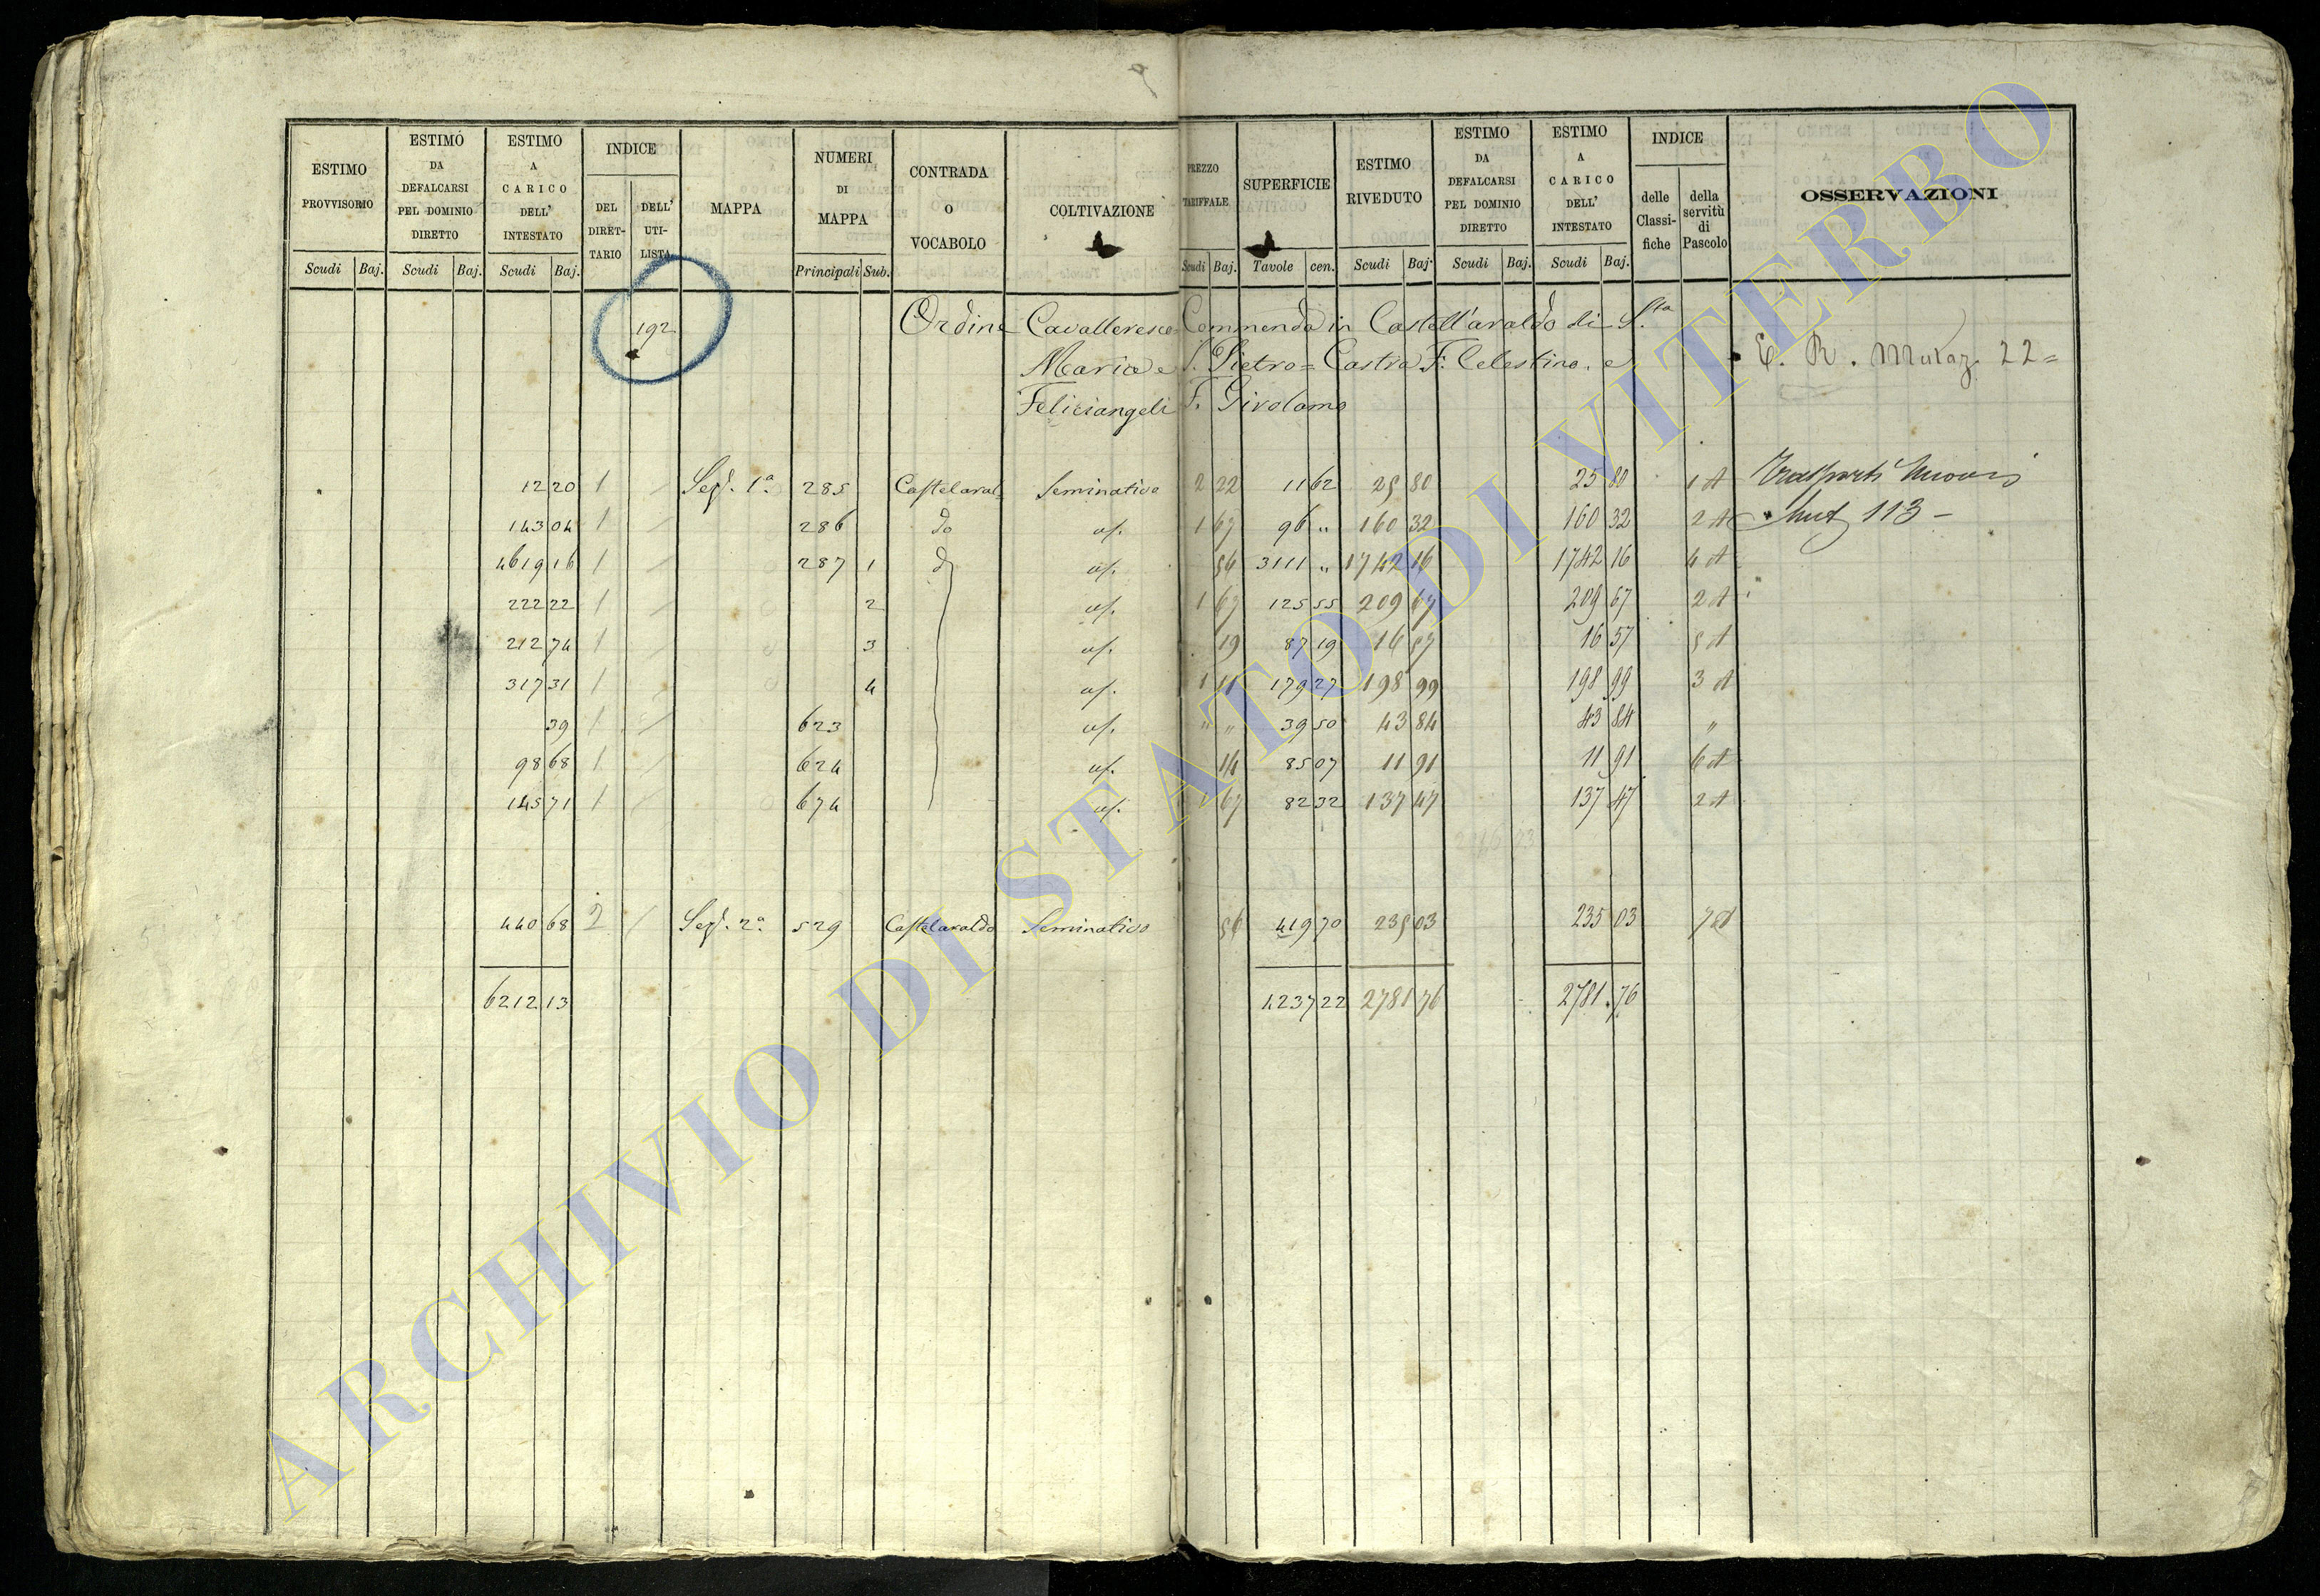 ESTIMO PROVVISORIO Scudi Baj. ESTIMO DA DEFALCARSI PEL DOMINIO DIRETTO Scudi Baj. ESTIMO A CARICO DELL' INTESTATO Scudi Baj. INDICE DEL DIRETTARIO DELL' UTILISTA MAPPA NUMERI DI MAPPA Principali Sub. CONTRADA O VOCABOLO COLTIVAZIONE PREZZO TARIFFALE Scudi Baj. SUPERFICIE Tavole cen. ESTIMO RIVEDUTO Scudi Baj. ESTIMO DA DEFALCARSI PEL DOMINIO DIRETTO Scudi Baj. ESTIMO A CARICO DELL' INTESTATO Scudi Baj. INDICE delle Classifiche della servitù di Pascolo OSSERVAZIONI
192 Ordine Cavalleresco Commenda in Castell'araldo di S.ta
Maria e S. Pietro = Castra F: Celestino. e E. R. Mutaz. 22=
Feliciangeli F. Girolamo
12 20 1 Sez. 1a. 285 Castelaral Seminativo 2 22 11 62 25 80 25 80 1 A
143 04 1 286 do id. 1 67 96 " 160 32 160 32 2 A 113 -
4619 16 1 287 1 id. 56 3111 " 1742 16 1742 16 4 A
222 22 1 2 id. 1 67 125 55 209 67 209 67 2 A
212 74 1 3 id. 19 87 19 16 57 16 57 5 A
317 31 1 4 id. 1 11 179 27 198 99 198 99 3 A
39 1 623 id. " " 39 50 43 84 43 84 "
98 68 1 624 id. 14 85 07 11 91 11 91 6 A
145 71 1 674 id. 1 67 82 32 137 47 137 47 2 A
440 68 2 Sez. 2a. 529 Castelaraldo Seminativo 56 419 70 235 03 235 03 7 A
6212 13 4237 22 2781 76 2781 76
ARCHIVIO DI STATO DI VITERBO